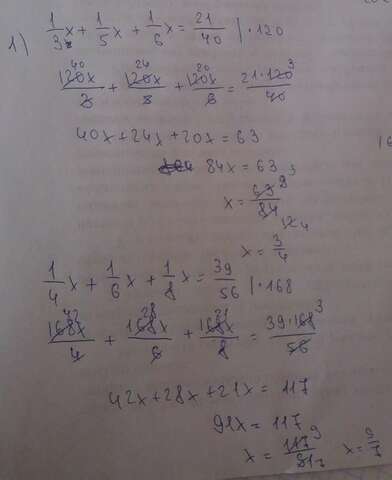 1) 1/3 x + 1/5 x + 1/6 x = 21/40 | · 120
120x/3 + 120x/5 + 120x/6 = 21·120/40
40x + 24x + 20x = 63
84x = 63
x = 63/84
x = 3/4
1/4 x + 1/6 x + 1/8 x = 39/56 | · 168
168x/4 + 168x/6 + 168x/8 = 39·168/56
42x + 28x + 21x = 117
91x = 117
x = 117/91 x = 9/7